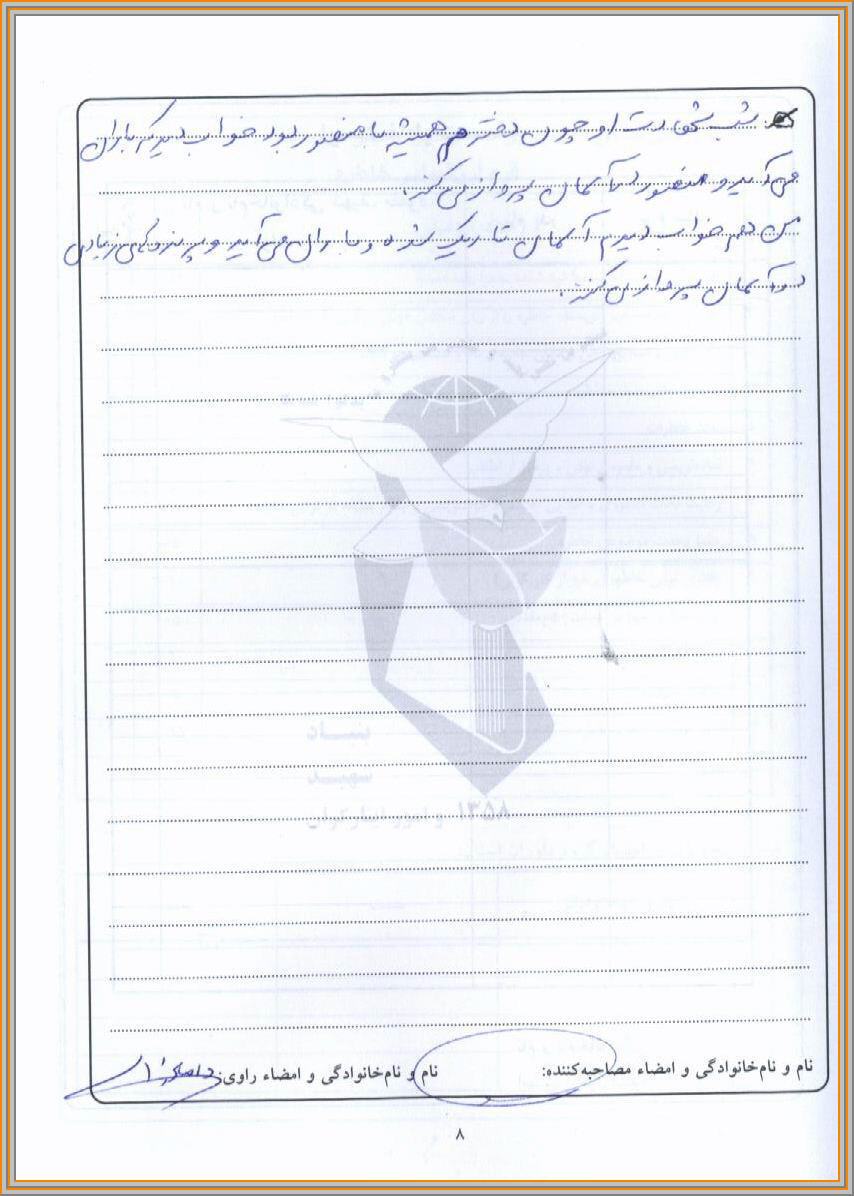 شب شهادت او چون دخترم همیشه با منصور بود خواب دیدم که باران
می‌آید و منصور در آسمان پرواز می‌کند.
من هم خواب دیدم آسمان تاریک شده و باران می‌آید و پرنده‌های زیادی
در آسمان پرواز می‌کنند.
۱۳۵۸
نام و نام‌خانوادگی و امضاء مصاحبه‌کننده:
نام و نام‌خانوادگی و امضاء راوی:
۸